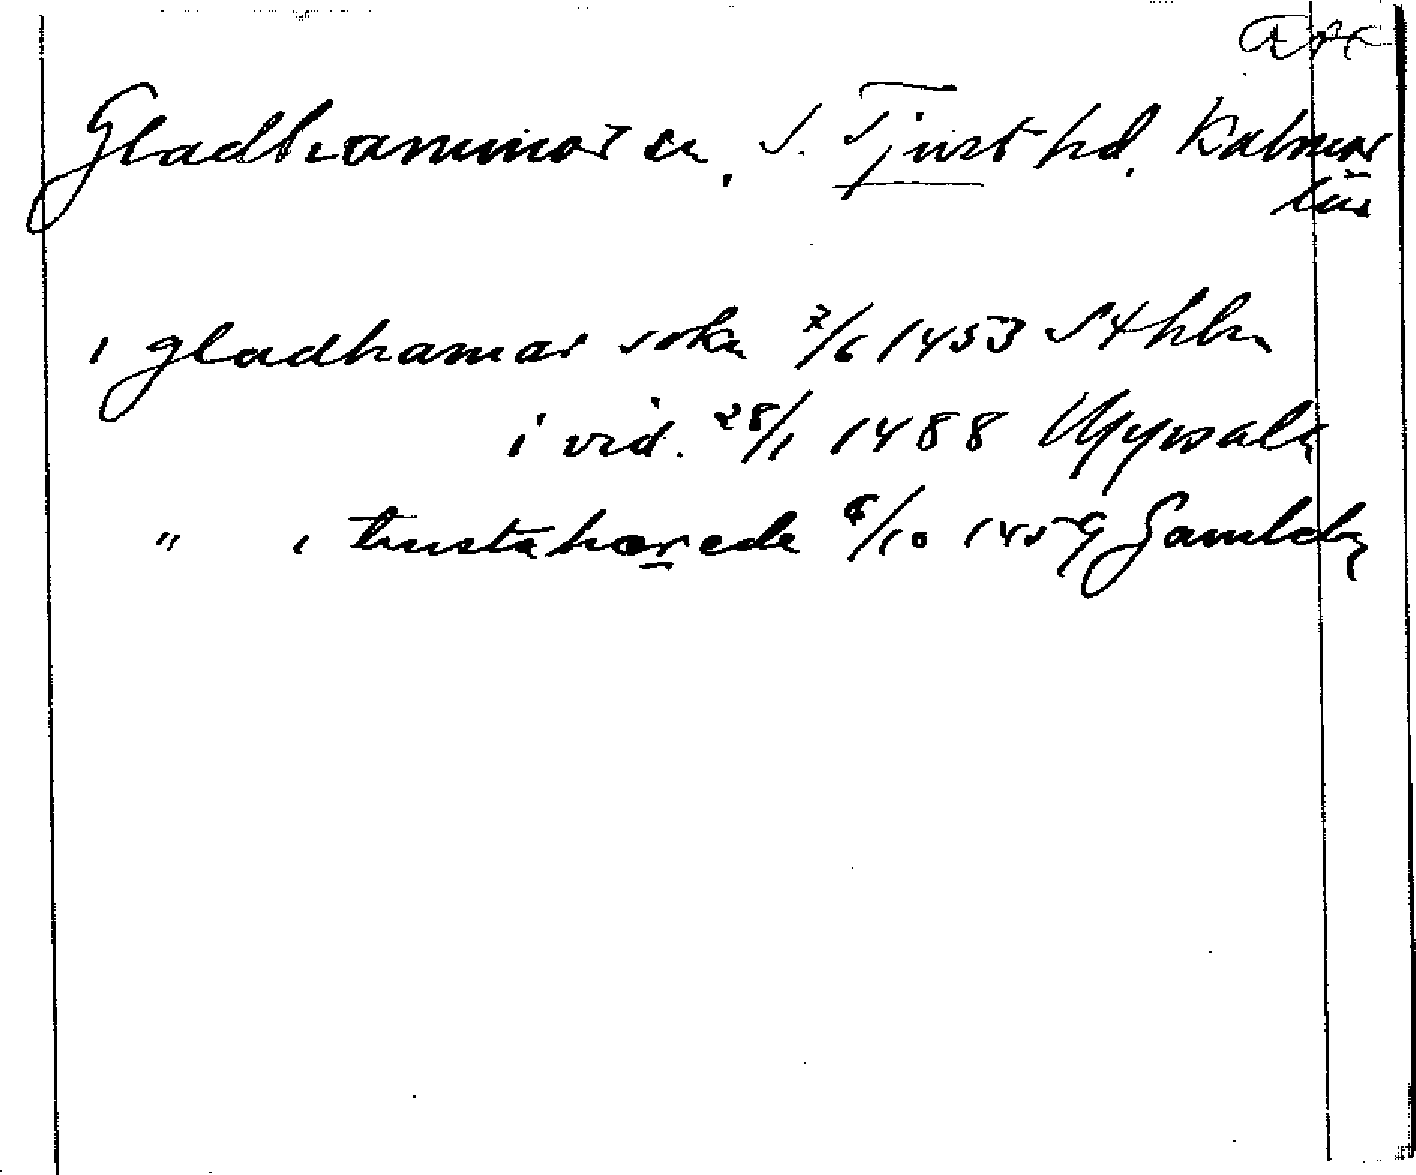 Gladhammar sn, S. Tjust hd, Kalmar
län
i gladhamar sokn 7/6 1453 Sthlm
i vid. 28/1 1488 Uppsala
" i thustahærede 6/10 1459 Gamleby